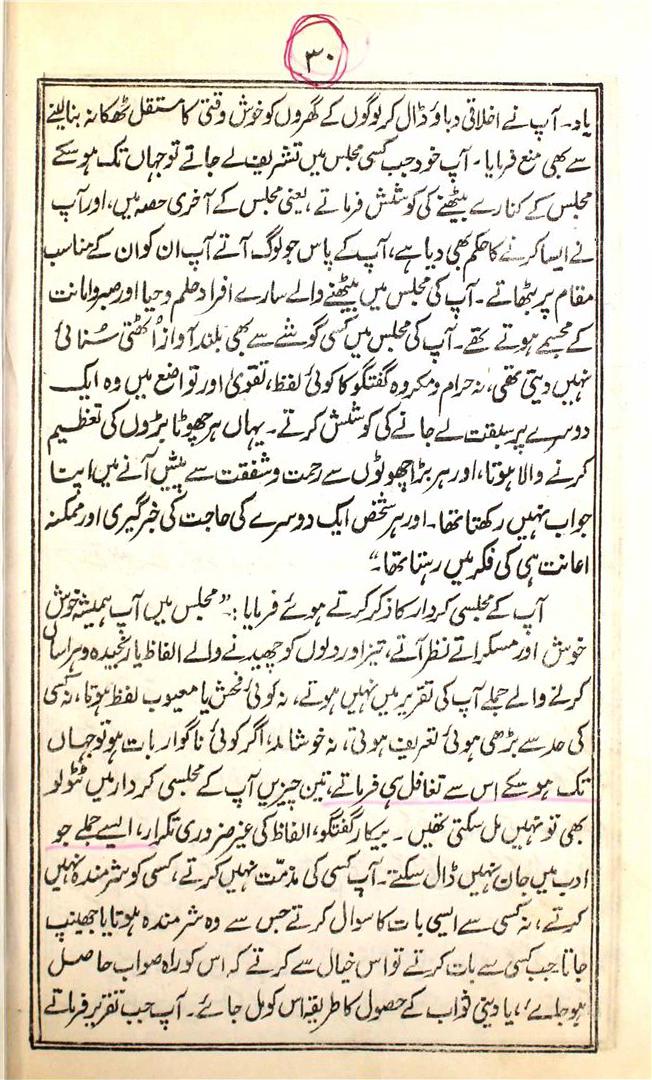 ۳۰
یاد۔ آپ نے اخلاقی دباؤ ڈال کر لوگوں کے گھروں کو خوش وقتی کا مستقل ٹھکانہ بنا لینے
سے بھی منع فرمایا۔ آپ خود جب کسی مجلس میں تشریف لے جاتے تو جہاں تک ہو سکے
مجلس کے کنارے بیٹھنے کی کوشش فرماتے، یعنی مجلس کے آخری حصہ میں، اور آپ
نے ایسا کرنے کا حکم بھی دیا ہے، آپ کے پاس جو لوگ آتے آپ ان کو ان کے مناسب
مقام پر بٹھاتے۔ آپ کی مجلس میں بیٹھنے والے سارے افراد حلم و حیا اور صبر و امانت
کے مجسمے ہوتے تھے۔ آپ کی مجلس میں کسی گوشے سے بھی بلند آواز اُٹھتی سُنائی
نہیں دیتی تھی، نہ حرام و مکروہ گفتگو کا کوئی لفظ، تقویٰ اور تواضع میں وہ ایک
دوسرے پر سبقت لے جانے کی کوشش کرتے۔ یہاں ہر چھوٹا بڑوں کی تعظیم
کرنے والا ہوتا، اور ہر بڑا چھوٹوں سے رحمت و شفقت سے پیش آنے میں اپنا
جواب نہیں رکھتا تھا۔ اور ہر شخص ایک دوسرے کی حاجت کی خبرگیری اور ممکنہ
اعانت ہی کی فکر میں رہتا تھا۔“
آپ کے مجلسی کردار کا ذکر کرتے ہوئے فرمایا:۔”مجلس میں آپ ہمیشہ خوش
خوش اور مسکراتے نظر آتے، تیز اور دلوں کو چھیدنے والے الفاظ یا رنجیدہ و ہراساں
کرنے والے جملے آپ کی تقریر میں نہیں ہوتے، نہ کوئی فحش یا معیوب لفظ ہوتا، نہ کسی
کی حد سے بڑھی ہوئی تعریف ہوتی، نہ خوشامد، اگر کوئی ناگوار بات ہو تو جہاں
تک ہو سکے اس سے تغافل ہی فرماتے، تین چیزیں آپ کے مجلسی کردار میں ٹٹولو
بھی تو نہیں مل سکتی تھیں۔ بیکار گفتگو، الفاظ کی غیر ضروری تکرار، ایسے جملے جو
ادب میں جان نہیں ڈال سکتے۔ آپ کسی کی مذمّت نہیں کرتے، کسی کو شرمندہ نہیں
کرتے، نہ کسی سے ایسی بات کا سوال کرتے جس سے وہ شرمندہ ہوتا یا جھینپ
جاتا جب کسی سے بات کرتے تو اس خیال سے کرتے کہ اس کو راہ صواب حاصل
ہو جائے، یا دینی ثواب کے حصول کا طریقہ اس کو مل جائے۔ آپ جب تقریر فرماتے